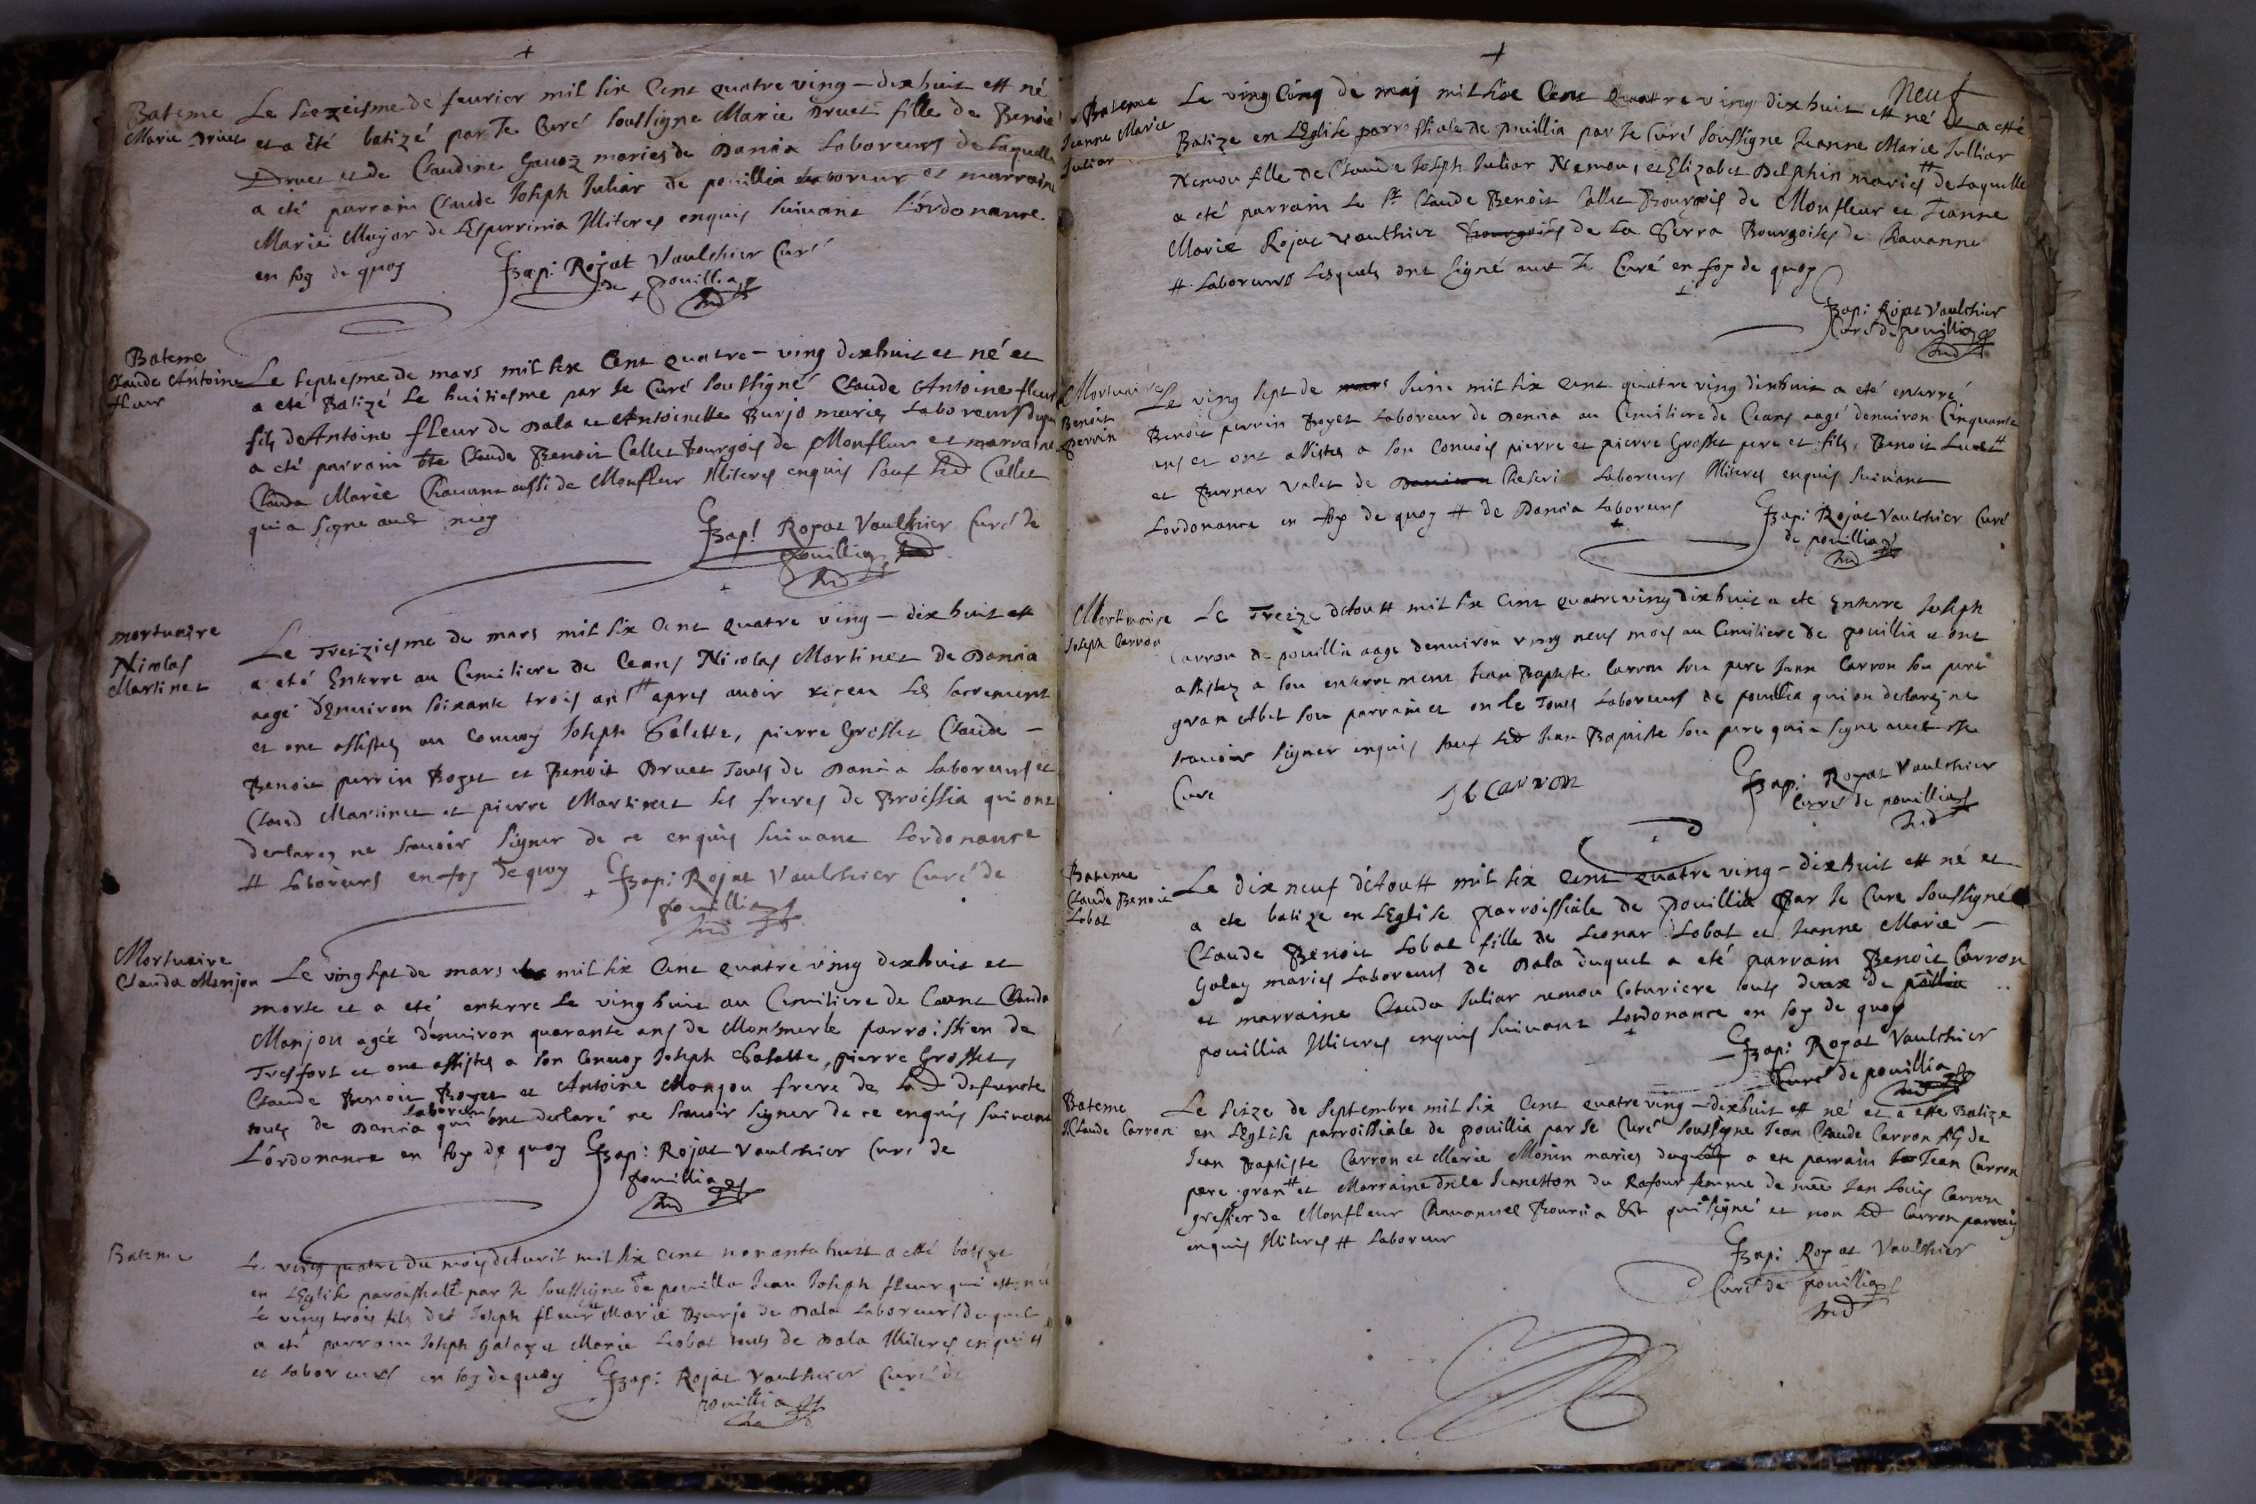 Bateme
Marie Druet
Le sezeisme de feurier mil six Cent quatre ving - dixhuit est né
et a été batizé par Je Curé soussigne Marie Druet fille de Benoit
Druet et de Claudine maries de Dancia Laboreurs de Laquelle
a eté parrain Claude Joseph Juliar de pouillia laboreur et marraine
Marie Mayor de Illiteres enquis suivant L'ordonance
en foy de quoy Bap: Rojat Vaulchier Curé
de pouillia
Bateme
Claude Antoine
fleur
Le septiesme de mars mil six Cent quatre - ving dixhuit et né et
a eté Batizé Le huitiesme par Je Curé soussigné Claude Antoine fleur
fils de Antoine fleur de Dala et Antoinette Burjo maries Laboreurs duquel
a eté parrain Claude Benoit Collet Bourgois de Monfleur et marraine
Clauda Marie Chavann aussi de Monfleur Illiteres enquis sauf led Collet
qui a signe avec moy
Bap: Rojat Vaulchier Curé de
pouillia
mortuaire
Nicolas
Martinet
Le Treiziesme de mars mil six Cent quatre ving - dix huit
a eté Enterré au Cimitiere de Ceans Nicolas Martinet de Dancia
aagé d'Enuiron soixante trois ans # apres auoir receu Les sacrements
et ont assistez au conuoy Joseph Galette, pierre Grosset Claude -
Benoit perrin Boyet et Benoit Druet Touts de Dancia Laboreurs et
Claud Martinet et pierre Martinet ses freres de Broissia qui ont
declarez ne scauoir signer de ce enquis suiuant Lordonance
# Laboreurs en foy de quoy Bap: Rojat Vaulchier Curé de
pouillia
Mortuaire
Clauda Monjou
Le ving sept de mars mil six Cent quatre ving dixhuit et
morte et a eté enterre Le ving huit au Cimitiere de Ceant Clauda
Monjou agée d'enuiron quarante ans de Monsmerle parroissien de
Tresfort et ont assistez a son conuoy Joseph Galette, pierre Grosset,
Claude Benoit Boyet et Antoine Monjou frere de Lad defuncte
touts de Dancia laboreurs qui ont declaré ne scauoir signer de ce enquis suiuant
L'ordonance en foy de quoy Bap: Rojat Vaulchier Curé de
pouillia
Bateme
Le ving quatre du moy d'auril mil six cent nonanta huit a etté batize
en L'Eglise paroissialle par Je soussigne de pouilla Jean Joseph fleur qui est né
Le ving trois fils de Joseph fleur Marie Burjo de Dala Laboreurs duquel
a eté parrain Joseph Galay et Marie Lobat touts de Dala Illiteres enquis
et Laboreurs en foy de quoy Bap: Rojat Vaulchier Curé de
pouillia
neuf
Bateme
Jeanne Marie
Juliar
Le ving cinq de maj mil six Cent quatre ving dixhuit est né et a etté
Batize en L'Eglise parrossiale de pouillia par Je Curé soussigne Jeanne Marie Julliar
Nemou fille de Claude Joseph Juliar Nemou, et Elizabet Delphin maries # de Laquelle
a eté parrain Le Sr Claude Benoit Collet Bourgois de Monfleur et Jeanne
Marie Rojat vauthier bourgoise de La Serra Bourgoises de Chavanne
# Laboreurs Lesquels ont signé auec Je Curé en foy de quoy
Bap: Rojat Vaulchier
Curé de pouillia
Mortuaire
Benoit
Perrin
Le ving sept de mars Juin mil six Cent quatre ving dixhuit a eté enterré
Benoit perrin Boyet Laboreur de Dancia au Cimitiere de Ceans aagé denuiron Cinquante
ans et ont assistez a son Conuois pierre et pierre Grosset pere et fils, Benoit
et Bernar Valet de Laboreurs Illiteres enquis suiuant
Lordonance en foy de quoy # de Dancia Laboreurs
Bap: Rojat Vaulchier Curé
de pouillia
Mortuaire
Joseph Carron
Le Treize d'Aoust mil six Cent quatre ving dixhuit a eté Enterre Joseph
Carron de pouillia aagé denuiron ving neuf mois au Cimitiere de pouillia et ont
assistez a son enterrement Jean Baptiste Carron son pere Jean Carron son pere
gran son parrain et Touts Laboreurs de pouillia qui on declarez ne
scauoir signer enquis sauf led Jean Baptiste son pere qui a signe auec Je
Curé
J b carron
Bap: Rojat Vaulchier
Curé de pouillia
Bateme
Claude Benoit
Lobat
Le dix neuf d'Aoust mil six Cent quatre ving - dixhuit est né et
a eté batize en L'Eglise parroissiale de pouillia par Je Cure soussigné
Claude Benoit Lobat fille de Leonar Lobat et Jeanne Marie -
Galay maries Laboreurs de Dala duquel a eté parrain Benoit Carron
et marraine Clauda Juliar nemou Coturiere touts deux de
pouillia Illiteres enquis suiuant Lordonance en foy de quoy
Bap: Rojat Vaulchier
Curé de pouillia
Bateme
J Claude Carron
Le seize de septembre mil six Cent quatre ving - dixhuit est né et a etté Batize
en L'Eglise parroissiale de pouillia par Je Curé soussigne Jean Claude Carron fils de
Jean Baptiste Carron et Marie Monin maries duquel a ete parrain Jean Carron
pere gran # et Marraine Jeanetton du Rafour femme de Jan Louis Carron
greffier de Monfleur qui a signé et non led Carron parrain
enquis Illiteres # Laboreur
Bap: Rojat Vaulchier
Curé de pouillia